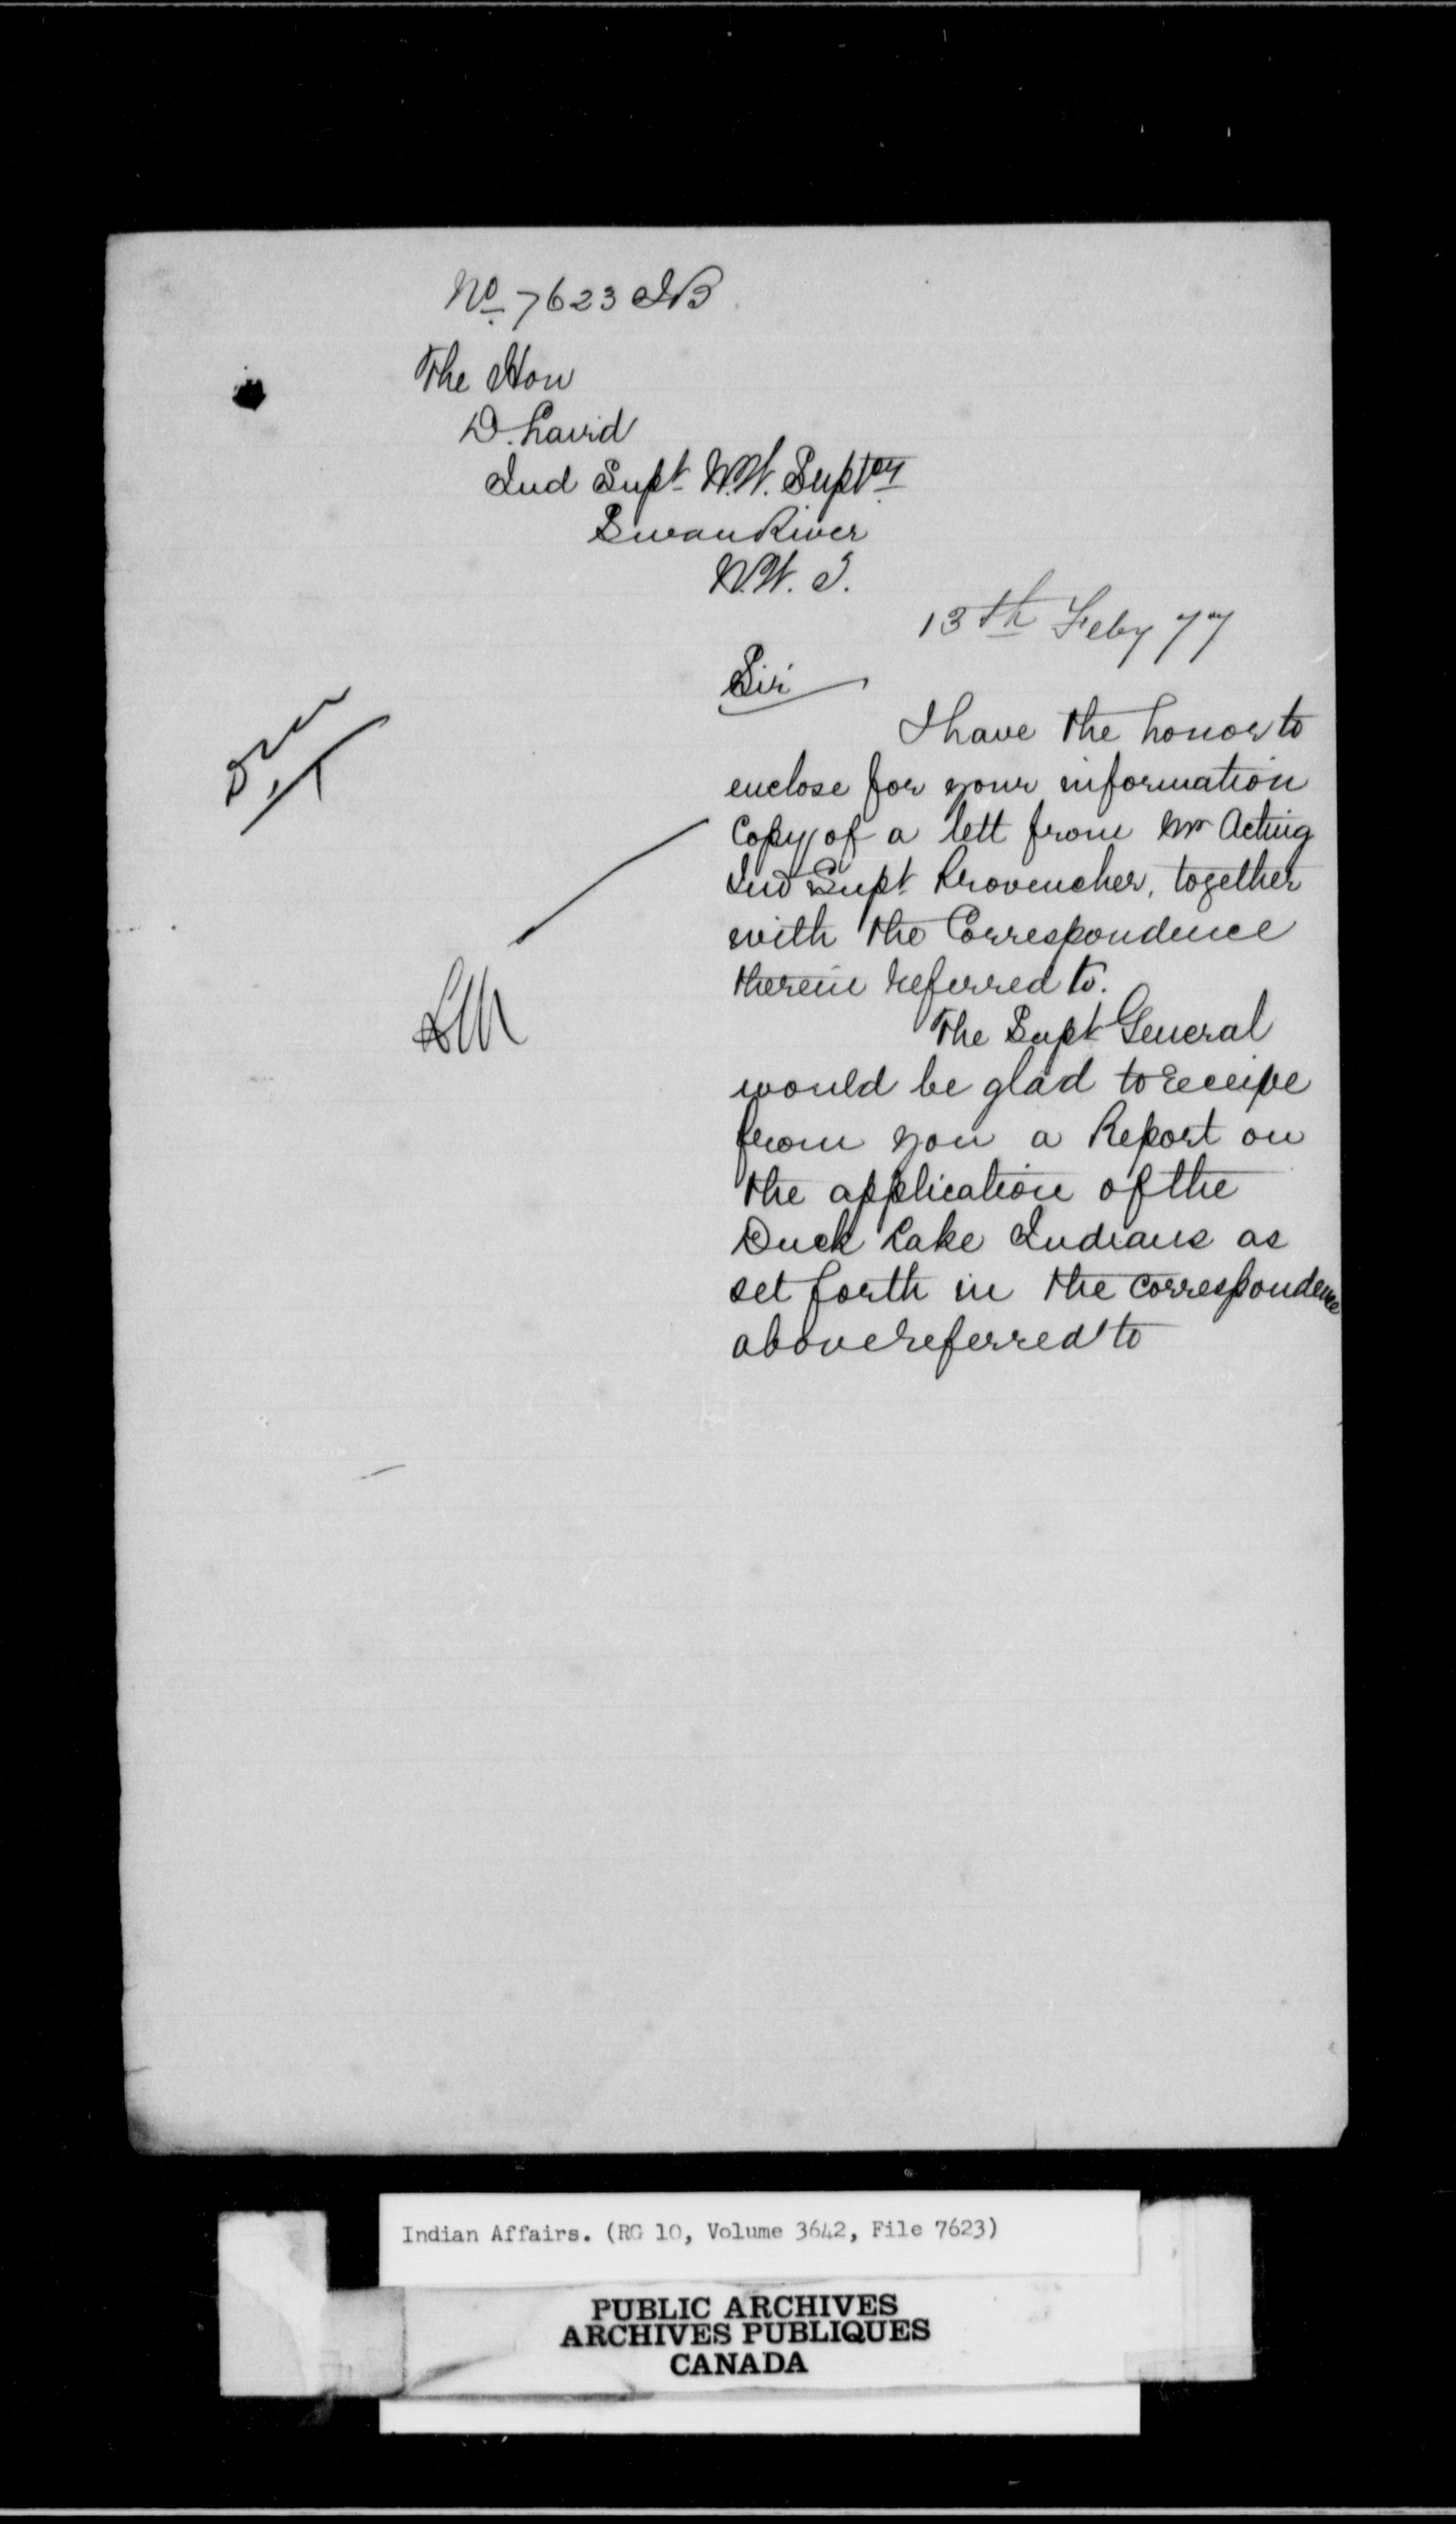 No 7623 IB
The Hon
D. Laird
Ind Supt N.W. Suptcy
Swan River
N.W.T.
13th Feby 77
Sir
I have the honor to
enclose for your information
Copy of a lett from Mr Acting
Ind Supt Provencher, together
with the Correspondence
therein referred to.
The Supt General
would be glad to receive
from you a Report on
the application of the
Duck Lake Indians as
set forth in the correspondence
above referred to
Indian Affairs. (RG 10, Volume 3642, File 7623)
PUBLIC ARCHIVES
ARCHIVES PUBLIQUES
CANADA